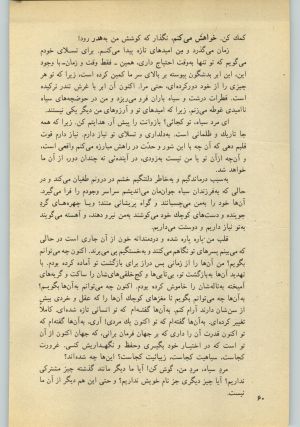 كمك كن. خواهش می‌كنم، نگذار كه كوشش من به‌هدر رود!
زمان می‌گذرد و من امیدهای تازه پیدا می‌كنم. برای تسلای خودم
می‌گویم كه تو تنها به‌وقت احتیاج داری، همین ـ فقط وقت و زمان ـ با وجود
این، این ابر بدشگون پیوسته بر بالای سر ما كمین كرده است، زیرا كه تو هر
چیزی را از خود دور كرده‌ای، حتی مرا. اكنون آن ابر با غرش تندر تركیده
است. قطرات درشت و سیاه باران فرو می‌ریزد و من در حوضچه‌های سیاه
ناامیدی غوطه می‌زنم. زیرا كه امیدهای تو و آرزوهای من دیگر یكی نیستند.
ای مرد سیاه، تو كجائی؟ بازوانت را پیش آر. هدایتم كن. زیرا كه همه
جا تاریك و ظلمانی است. به‌دلداری و تسلای تو نیاز دارم. نیاز دارم قوت
قلبم دهی كه آن چه را با این شور و حدّت در راهش مبارزه می‌كنم واقعی است،
و آن‌چه ازآن تو یا من نیست به‌زودی، در آینده‌ئی نه چندان دور، از آن ما
خواهد شد.
به‌سبب درماندگیم و به‌خاطر دلتنگیم خشم در درونم طغیان می‌كند و در
حالی كه به‌فرزندان سیاه جوان‌مان می‌اندیشم سراسر وجودم را فرا می‌گیرد.
آن‌ها خود را به‌من می‌چسبانند و گواه پریشانی منند؛ وبا چهره‌های گردِ
جوینده و دست‌های كوچك خود می‌كوشند به‌من نیرو دهند، و آهسته می‌گویند
به‌تو نیاز داریم و دوستت می‌داریم.
قلب من پاره پاره شده و دردمندانه خون از آن جاری است در حالی
كه بینم پسرهای تو نگاهم می‌كنند و به‌خستگیم پی می‌برند. اكنون چه می‌توانم
بگویم؟ من آن‌ها را از زمانی بس دراز برای بازگشت تو آماده كرده بودم. با
تهدید آن‌ها به‌بازگشت تو، بی‌تابی‌ها و كج‌خلقی‌های‌شان را ساكت و گریه‌های
آمیخته به‌ناله‌شان را خاموش كرده بودم. اكنون چه می‌توانم به‌آن‌ها بگویم؟
به‌آن‌ها چه می‌توانم بگویم تا مغزهای كوچك آن‌ها را كه عقل و خردی بیش
از سن‌شان دارند آرام كنم. به‌آن‌ها گفته‌ام كه تو انسانی تازه شده‌ای، كاملاً
تازه، نیرومند و آزاد، به‌آن‌ها گفته‌ام كه تو اكنون یك مردی! آری، به‌آن‌ها گفته‌ام كه
تو اكنون قدرت آن را داری كه بر جهان فرمان برانی، كه جهان اكنون از آن
تو است كه در اختیار خود بگیری وحفظ و نگهداریش كنی. غرورت
كجاست، سیاهیت كجاست، زیبائیت كجاست؟ این‌ها چه شده‌اند؟
مردِ سیاه، مردِ من، گوش كن! آیا ما دیگر مانند گذشته چیز مشتركی
نداریم؟ آیا چیز دیگری جز نام خویش نداریم؟ و حتی این هم دیگر از آن ما
نیست.
۶۰